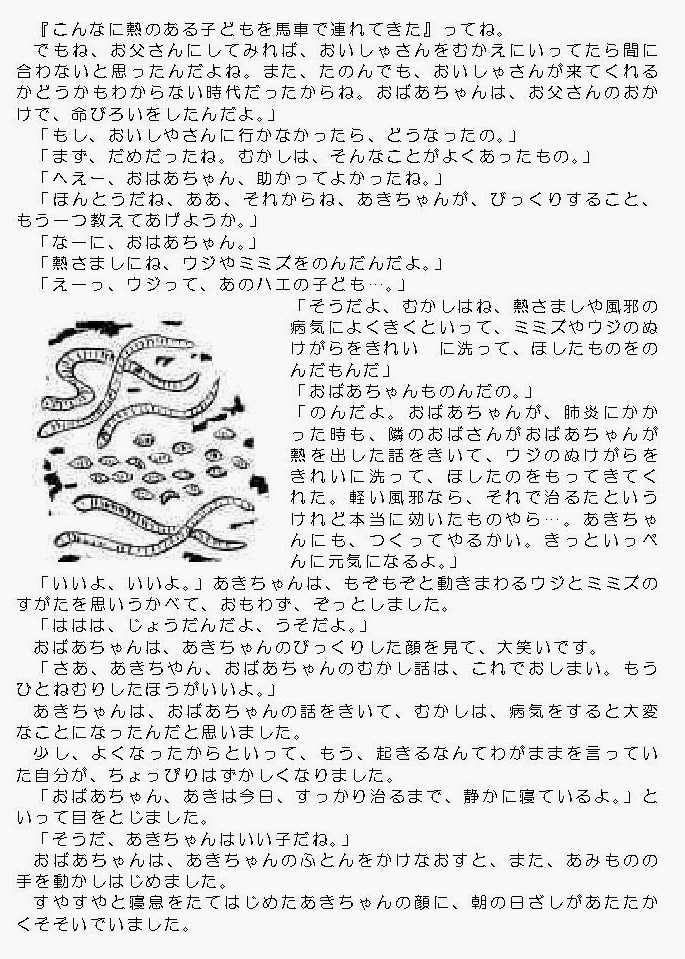 『こんなに熱のある子どもを馬車で連れてきた』ってね。
でもね、お父さんにしてみれば、おいしゃさんをむかえにいってたら間に
合わないと思ったんだよね。また、たのんでも、おいしゃさんが来てくれる
かどうかもわからない時代だったからね。おばあちゃんは、お父さんのおか
げで、命びろいをしたんだよ。」
「もし、おいしやさんに行かなかったら、どうなったの。」
「まず、だめだったね。むかしは、そんなことがよくあったもの。」
「へえー、おはあちゃん、助かってよかったね。」
「ほんとうだね、ああ、それからね、あきちゃんが、びっくりすること、
もう一つ教えてあげようか。」
「なーに、おはあちゃん。」
「熱さましにね、ウジやミミズをのんだんだよ。」
「えーっ、ウジって、あのハエの子ども…。」
「そうだよ、むかしはね、熱さましや風邪の
病気によくきくといって、ミミズやウジのぬ
けがらをきれい　に洗って、ほしたものをの
んだもんだ」
「おばあちゃんものんだの。」
「のんだよ。おばあちゃんが、肺炎にかか
った時も、隣のおばさんがおばあちゃんが
熱を出した話をきいて、ウジのぬけがらを
きれいに洗って、ほしたのをもってきてく
れた。軽い風邪なら、それで治るたという
けれど本当に効いたものやら…。あきちゃ
んにも、つくってやるかい。きっといっぺ
んに元気になるよ。」
「いいよ、いいよ。」あきちゃんは、もぞもぞと動きまわるウジとミミズの
すがたを思いうかべて、おもわず、ぞっとしました。
「ははは、じょうだんだよ、うそだよ。」
おばあちゃんは、あきちゃんのびっくりした顔を見て、大笑いです。
「さあ、あきちやん、おばあちゃんのむかし話は、これでおしまい。もう
ひとねむりしたほうがいいよ。」
あきちゃんは、おばあちゃんの話をきいて、むかしは、病気をすると大変
なことになったんだと思いました。
少し、よくなったからといって、もう、起きるなんてわがままを言ってい
た自分が、ちょっぴりはずかしくなりました。
「おばあちゃん、あきは今日、すっかり治るまで、静かに寝ているよ。」と
いって目をとじました。
「そうだ、あきちゃんはいい子だね。」
おばあちゃんは、あきちゃんのふとんをかけなおすと、また、あみものの
手を動かしはじめました。
すやすやと寝息をたてはじめたあきちゃんの顔に、朝の日ざしがあたたか
くそそいでいました。